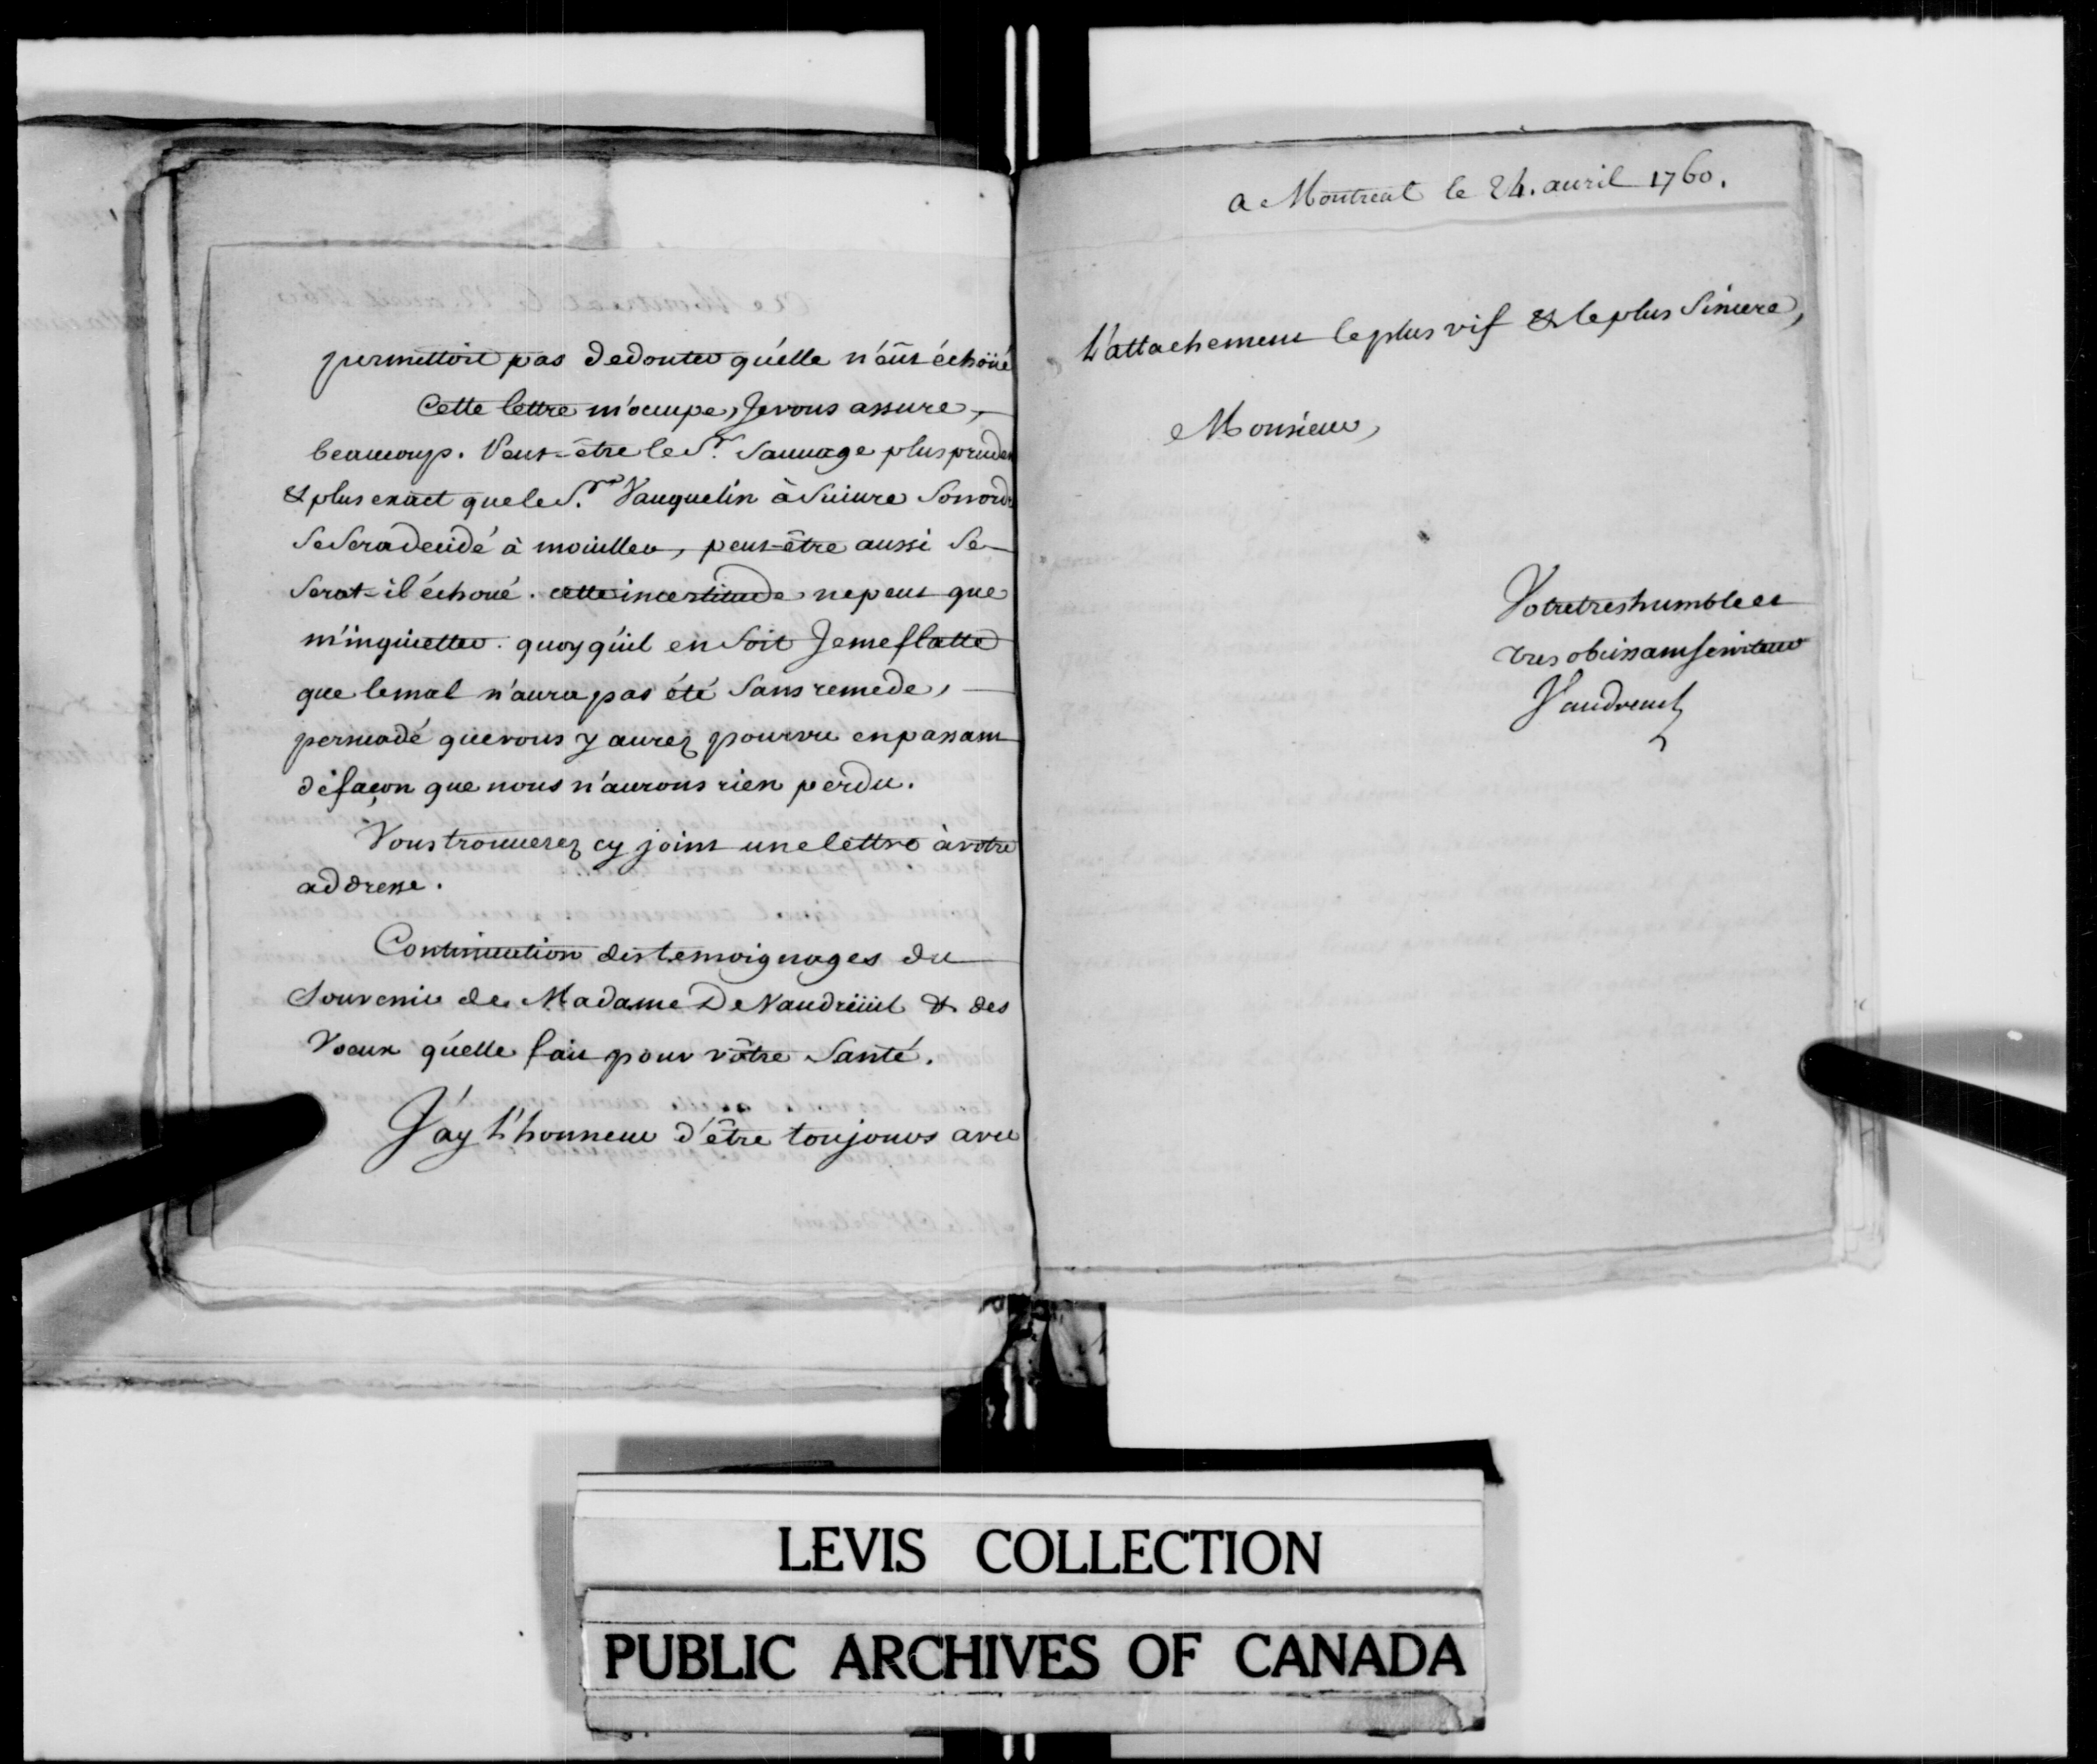 permettoit pas de douter qu'elle n'eût échoüé
Cette lettre m'ocupe, Je vous assure,
beaucoup. Peut-être le Sr. Sauvage plus pruden
& plus exact que le Sr. Vauquelin à Suiure Son ordr
Se Sera decidé à moüiller, peut-être aussi Se
Serat-il échoué. cette incertitude ne peut que
m'inquietter. quoy qu'il en Soit Je me flatte
que le mal n'aura pas été Sans remede,
persuadé que vous y aurez pourvu en passant
de façon que nous n'aurons rien perdu.
Vous trouuerez cy joint une lettre à votre
addresse.
Continuation des temoignages du
Souvenir de Madame De Vaudreüil & des
Voeux qu'elle fait pour vôtre Santé.
J'ay L'honneur d'être toujours avec
a Montreal le 24. auril 1760.
L'attachement le plus vif & le plus Sincere,
Monsieur,
Votre tres humble et
tres obeissant serviteur
Vaudreuil
LEVIS COLLECTION
PUBLIC ARCHIVES OF CANADA